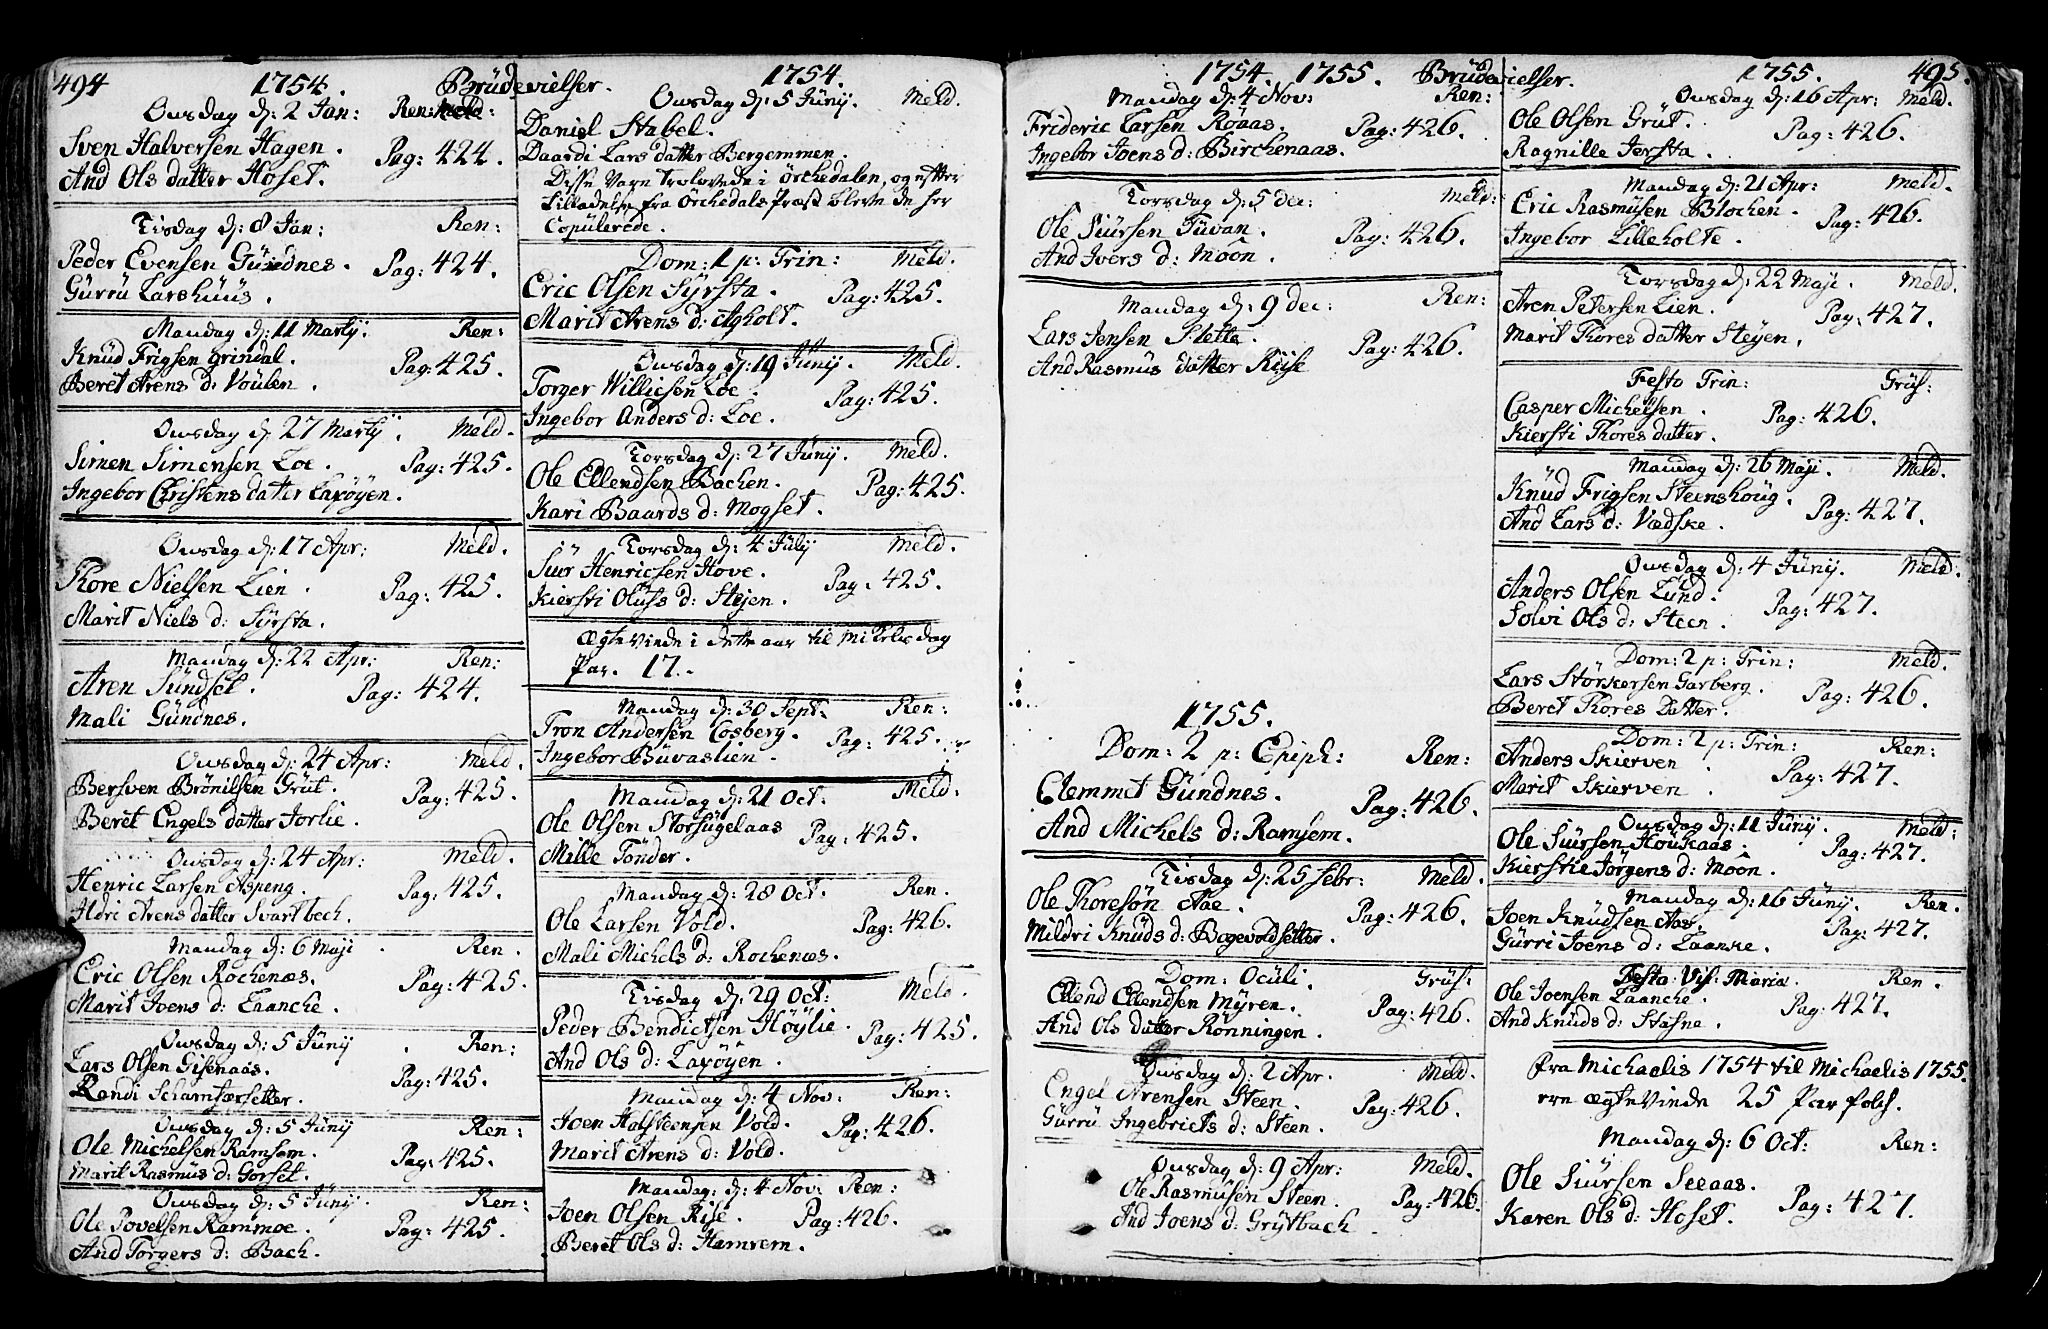 494 1754. Brüdevielser. 1754.
Onsdag d: 2 Jan: Ren:
Sven Halversen Hagen. Pag: 424.
And Ols datter Hoset.
Tisdag d: 8 Jan: Ren:
Peder Evensen Gündnes. Pag: 424.
Gürrü Larshüüs.
Mandag d: 11 Martij. Ren:
Knüd Frigsen Grindal. Pag: 425.
Beret Arens d: Voülen.
Onsdag d. 27 Martij. Meld.
Simen Simensen Loe. Pag: 425.
Ingebor Christens datter Laxøyen.
Onsdag d: 17 Apr: Meld.
Thore Nielsen Lien. Pag: 425.
Marit Niels d: Syrsta.
Mandag d: 22 Apr: Ren:
Aren Sündset. Pag: 424.
Mali Gündnes.
Onsdag d: 24 Apr: Meld.
Bersven Brönilsen Grüt. Pag: 425.
Beret Engels datter Jorlie.
Onsdag d: 24 Apr: Meld.
Henric Larsen Aspeng. Pag: 425.
Ildri Arens datter Svartbech.
Mandag d: 6 Maji Ren.
Eric Olsen Rochenæs. Pag: 425.
Marit Joens d: Laanche.
Onsdag d: 5 Jünij. Ren:
Lars Olsen Gisenaas. Pag: 425.
Randi Schamfærsetter.
Onsdag d: 5 Jünij Ren:
Ole Michelsen Ramsem. Pag: 425.
Marit Rasmus d: Gorset.
Onsdag d: 5 Jünij. Ren:
Ole Povelsen Rammoe. Pag: 425.
And Torgers d: Bach.
Onsdag d: 5 Jünij. Meld.
Daniel Stabel.
Daardi Lars datter Bergemmen.
Disse vare trolovede i Örchedalen, og efter
tilladelse fra Örchedals Præst bleve de her
Copülerede.
Dom: 1 p: Trin: Meld.
Eric Olsen Syrsta. Pag: 425.
Marit Arens d: Agholt.
Onsdag d: 19 Jünij. Meld.
Torger Willicsen Loe. Pag: 425.
Ingebor Anders d: Loe.
Torsdag d: 27 Jünij. Meld.
Ole Ellendsen Bachen. Pag: 425.
Kari Baards d: Mogset.
Torsdag d: 4 Jülij Meld.
Siür Henricsen Hove. Pag. 425.
Kiersti Olüfs d: Stejen.
Ægtevinde i dette aar til Mikelsdag
Par. 17.
Mandag d: 30 Sept: Ren:
Tron Andersen Cosberg. Pag: 425.
Ingebor Büvaslien.
Mandag d: 21 Oct. Meld:
Ole Olsen Storfügelaas Pag: 425.
Mille Tönder.
Mandag d: 28 Oct. Ren.
Ole Larsen Vold. Pag: 426.
Mali Michels d: Rochenæs.
Tisdag d. 29 Oct: Meld.
Peder Bendictsen Höylie. Pag: 425.
And Ols d: Laxøyen.
Mandag d: 4 Nov: Ren:
Joen Halsteensen Vold. Pag: 426.
Marit Arens d: Vold.
Mandag: d: 4 Nov: Ren:
Joen Olsen Rise. Pag: 426.
Beret Ols d: Hamrem.
1754. 1755. Brüdevielser. 1755. 495.
Mandag d: 4 Nov: Ren:
Frideric Larsen Röaas. Pag: 426.
Ingebor Joens d: Birchenaas.
Torsdag d: 5 Dec: Meld:
Ole Siürsen Tüvan. Pag: 426.
And Ivers d: Moon.
Mandag d: 9 Dec: Ren:
Lars Jensen Slette. Pag: 426.
And Rasmüs datter Riise
1755.
Dom: 2 p: Epiph: Ren:
Clemmet Gündnes. Pag: 426.
And Michels d: Ramsem.
Tisdag d: 25 Febr: Meld.
Ole Thoresøn Aae. Pag: 426.
Mildri Knüds d: Bogevoldsetter.
Dom: Ocüli. Grüs:
Ellend Ellendsen Myren. Pag: 426.
And Ols datter Rönningen.
Onsdag d: 2 Apr. Meld.
Engel Arensen Steen. Pag: 426.
Gürrü Ingebricts d: Steen.
Onsdag d: 9 Apr: Meld.
Ole Rasmusen Steen. Pag: 426.
And Joens d: Grytbach
Onsdag d: 16 Apr: Meld.
Ole Olsen Grüt. Pag: 426.
Ragnille Jersta.
Mandag d: 21 Apr: Meld.
Eric Rasmüsen Blochen. Pag: 426.
Ingebor Lilleholte.
Torsdag d: 22 Maji. Meld.
Aren Petersen Lien. Pag: 427.
Marit Thores datter Steyen.
Festo Trin: Grüs:
Casper Michelsen. Pag: 426.
Kiersti Thores datter.
Mandag d: 26 Maji. Meld.
Knüd Frigsen Steenshoüg. Pag: 427.
And Lars d: Vædske.
Onsdag d: 4 Jünij. Meld.
Anders Olsen Lünd. Pag: 427.
Solvi Ols d: Steen.
Dom: 2 p: Trin: Meld.
Lars Störkersen Garberg. Pag: 426.
Beret Thores Datter.
Dom: 2 p: Trin: Ren:
Anders Skierven Pag: 427.
Marit Skierven.
Onsdag d: 11 Jünij. Meld:
Ole Siürsen Höükaas. Pag: 427.
Kierstie Jörgens d: Moon.
Mandag d: 16 Jünij. Ren.
Joen Knüdsen Aas. Pag: 427.
Gürri Joens d: Laanke.
Festo Vis: Mariæ Ren.
Ole Joensen Laanche. Pag: 427.
And Knüds d: Stasne.
Fra Michaelis 1754 til Michaelis 1755.
ere Ægtevinde 25 Par Folch.
Mandag d: 6 Oct: Ren:
Ole Siürsen Seeaas. Pag: 427.
Karen Ols d: Hoset.